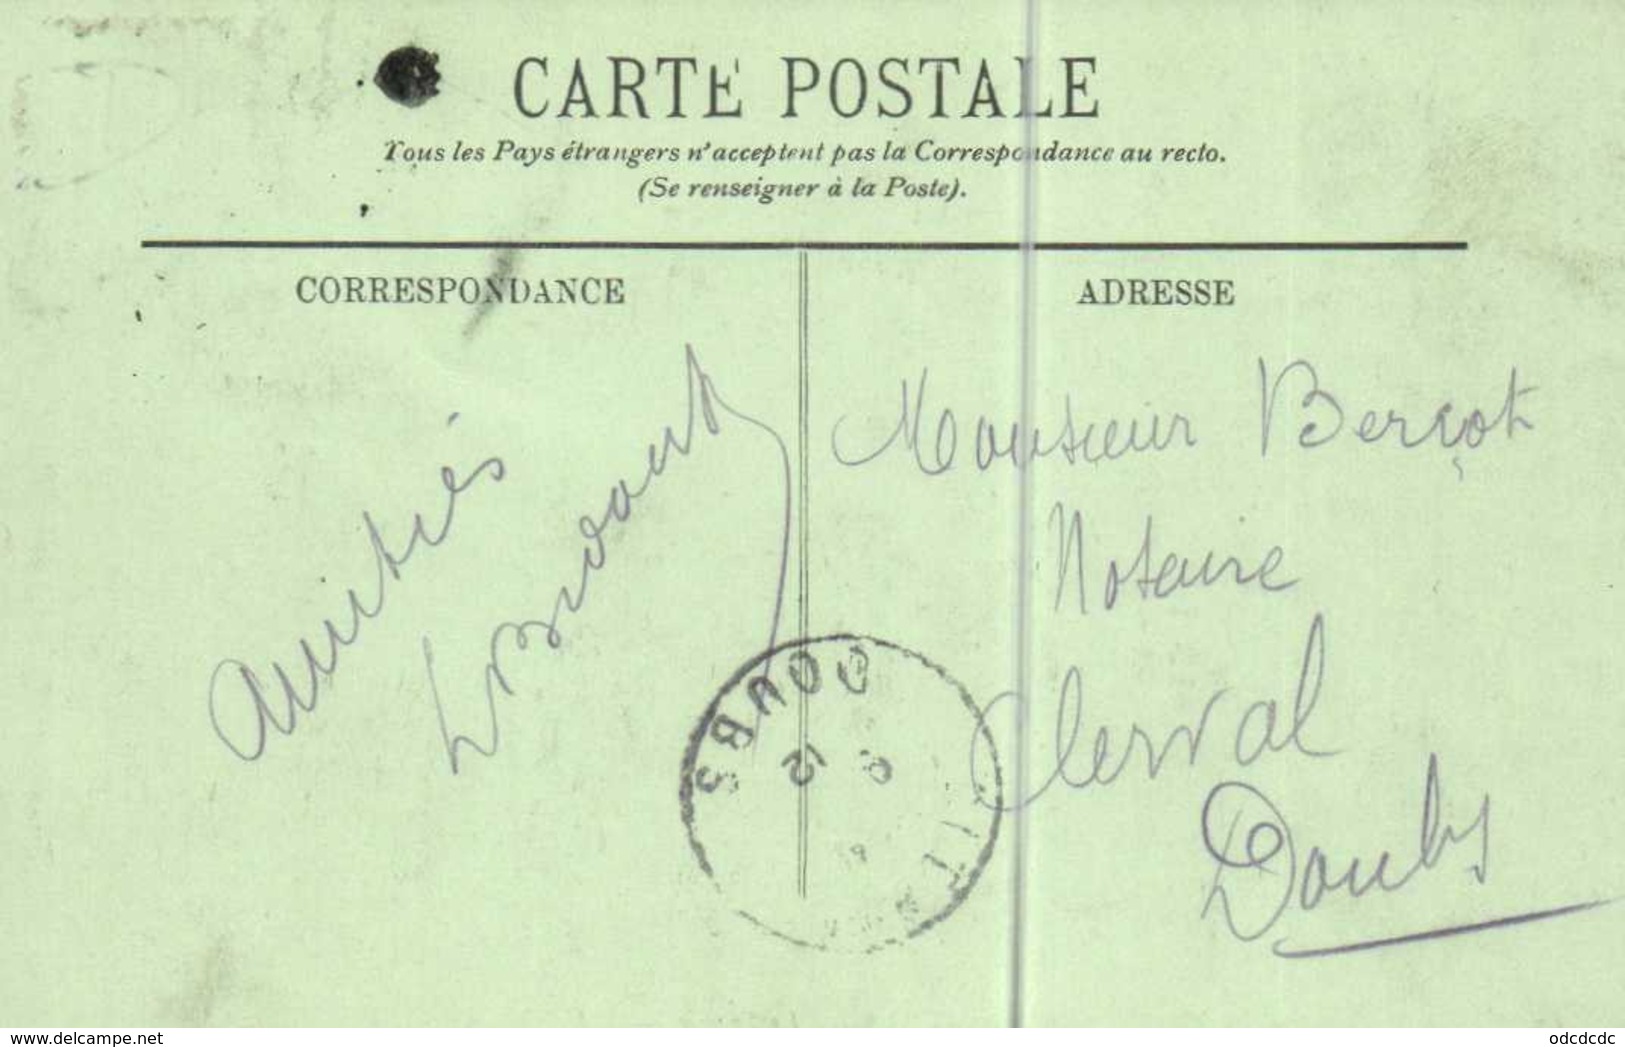 CARTE POSTALE
Tous les Pays étrangers n'acceptent pas la Correspondance au recto.
(Se renseigner à la Poste).
CORRESPONDANCE
ADRESSE
Amitiés
Monsieur Berçot
Notaire
Clerval
Doubs
DOUBS
12
delcampe.net
odcdcdc